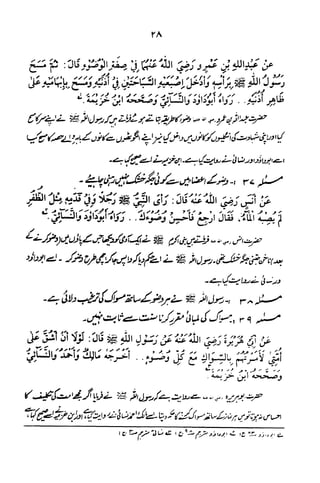 ٢٨
عَنْ عَبْدِاللهِ بْنِ عَمْرٍو رَضِيَ اللهُ عَنْهُمَا فِيْ صِفَةِ الْوُضُوْءِ قَالَ: ثُمَّ مَسَحَ
رَسُوْلُ اللهِ ﷺ بِرَأْسِهِ وَأَدْخَلَ إِصْبَعَيْهِ السَّبَّاحَتَيْنِ فِيْ أُذُنَيْهِ وَمَسَحَ بِإِبْهَامَيْهِ عَلٰى
ظَاهِرِ أُذُنَيْهِ. . رَوَاهُ أَبُوْدَاوُدَ وَالنَّسَآئِيُّ وَصَحَّحَهُ ابْنُ خُزَيْمَةَ.
حضرت عبداللہ بن عمرو وضو کا طریقہ بتاتے ہوئے فرماتے ہیں کہ رسول اللہ ﷺ نے اپنے سر کا مسح
کیا اور اپنی شہادت کی انگلیوں کو کانوں میں داخل کیا نیز اپنے انگوٹھوں سے کانوں کے باہر والے حصہ کا مسح کیا
اسے ابوداؤد اور نسائی نے روایت کیا ہے۔ ابن خزیمہ نے اسے صحیح کہا ہے۔
مسئلہ ٣٧ ۔ وضو کے اعضاء میں سے کوئی جگہ خشک نہیں رہنی چاہیئے۔
عَنْ أَنَسٍ رَضِيَ اللهُ عَنْهُ قَالَ: رَأَى النَّبِيُّ ﷺ رَجُلًا وَفِيْ قَدَمِهِ مِثْلُ الظُّفْرِ
لَمْ يُصِبْهُ الْمَاءُ. فَقَالَ ارْجِعْ فَأَحْسِنْ وُضُوْءَكَ. . رَوَاهُ أَبُوْدَاوُدَ وَالنَّسَآئِيُّ
حضرت انس فرماتے ہیں نبی اکرم ﷺ نے ایک آدمی کو دیکھا جس کے پاؤں میں (وضو کرنے کے
بعد) ناخن جتنی جگہ خشک تھی۔ رسول اللہ ﷺ نے اسے حکم دیا کہ واپس جا کر اچھی طرح وضو کر۔ اسے ابوداؤد
اور نسائی نے روایت کیا ہے۔
مسئلہ ٣٨ ۔ رسول اللہ ﷺ نے ہر وضو کے ساتھ مسواک کی ترغیب دلائی ہے۔
مسئلہ ٣٩ ۔ مسواک کی لمبائی مقرر کرنا سنت سے ثابت نہیں۔
عَنْ أَبِيْ هُرَيْرَةَ رَضِيَ اللهُ عَنْهُ عَنْ رَسُوْلِ اللهِ ﷺ قَالَ: لَوْلَا أَنْ أَشُقَّ عَلٰى
أُمَّتِيْ لَأَمَرْتُهُمْ بِالسِّوَاكِ مَعَ كُلِّ وُضُوْءٍ. . أَخْرَجَهُ مَالِكٌ وَأَحْمَدُ وَالنَّسَآئِيُّ
وَصَحَّحَهُ ابْنُ خُزَيْمَةَ
حضرت ابو ہریرہ سے روایت ہے کہ رسول اللہ ﷺ نے فرمایا اگر مجھے امت کی تکلیف کا
احساس نہ ہوتا تو میں ہر نماز کے ساتھ مسواک کا حکم دیتا